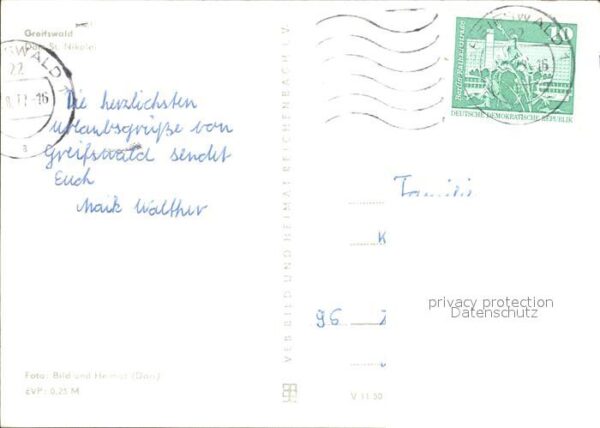 Greifswald
Dom St. Nikolai
Die herzlichsten
Urlaubsgrüße von
Greifswald sendet
Euch
Maik Walther
Foto: Bild und Heimat (Dan)
EVP: 0,25 M
VEB BILD UND HEIMAT REICHENBACH i. V.
V 11 50
GREIFSWALD 1
22
16
a
10
Berlin, Rathausstrasse
DEUTSCHE DEMOKRATISCHE REPUBLIK
Familie
K
96
privacy protection
Datenschutz